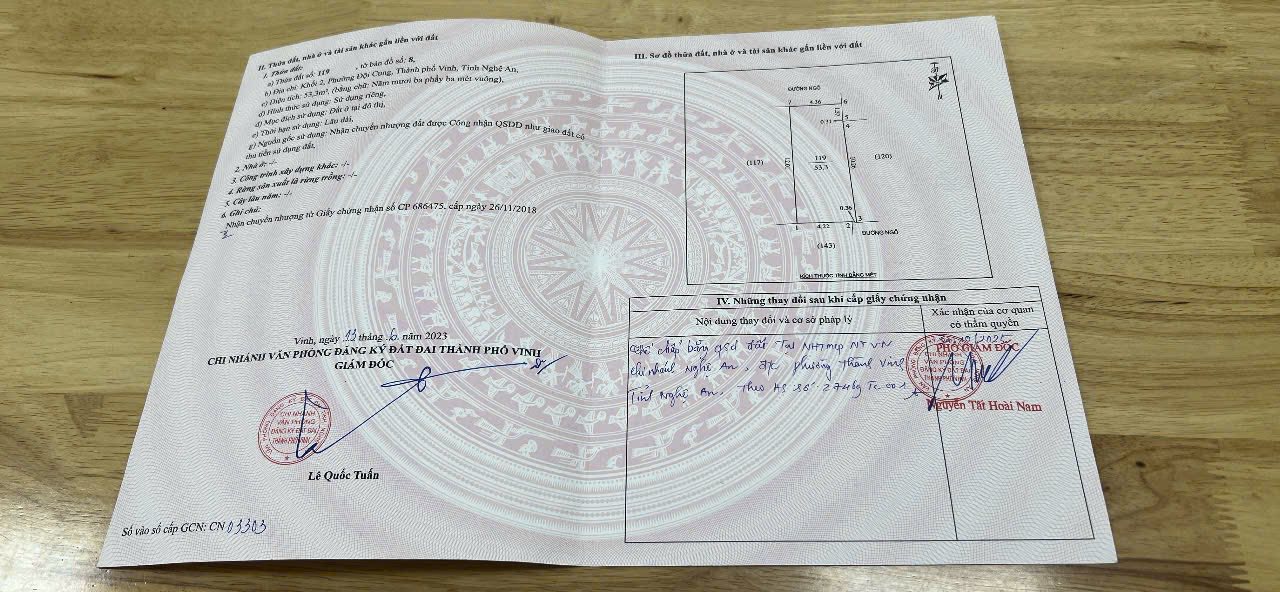 II. Thửa đất, nhà ở và tài sản khác gắn liền với đất
1. Thửa đất:
a) Thửa đất số: 119 , tờ bản đồ số: 8,
b) Địa chỉ: Khối 2, Phường Đội Cung, Thành phố Vinh, Tỉnh Nghệ An,
c) Diện tích: 53,3m², (bằng chữ: Năm mươi ba phẩy ba mét vuông),
d) Hình thức sử dụng: Sử dụng riêng,
đ) Mục đích sử dụng: Đất ở tại đô thị,
e) Thời hạn sử dụng: Lâu dài,
g) Nguồn gốc sử dụng: Nhận chuyển nhượng đất được Công nhận QSDĐ như giao đất có
thu tiền sử dụng đất,
2. Nhà ở: -/-
3. Công trình xây dựng khác: -/-
4. Rừng sản xuất là rừng trồng: -/-
5. Cây lâu năm: -/-
6. Ghi chú:
Nhận chuyển nhượng từ Giấy chứng nhận số CP 686475, cấp ngày 26/11/2018
Vinh, ngày 13 tháng 6 năm 2023
CHI NHÁNH VĂN PHÒNG ĐĂNG KÝ ĐẤT ĐAI THÀNH PHỐ VINH
GIÁM ĐỐC
CHI NHÁNH
VĂN PHÒNG
ĐĂNG KÝ ĐẤT ĐAI
THÀNH PHỐ VINH
Lê Quốc Tuấn
Số vào sổ cấp GCN: CN 03303
III. Sơ đồ thửa đất, nhà ở và tài sản khác gắn liền với đất
ĐƯỜNG NGÕ
7 4.36 6
5
0.31 4
(117)
119
53.3
(120)
0.36
1 4.22 2 3
ĐƯỜNG NGÕ
(143)
KÍCH THƯỚC TÍNH BẰNG MÉT
IV. Những thay đổi sau khi cấp giấy chứng nhận
Nội dung thay đổi và cơ sở pháp lý
Xác nhận của cơ quan
có thẩm quyền
Thế chấp bằng qsd đất Tại NHTMCP NT VN
chi nhánh Nghệ An, đ/c phường Thành Vinh,
Tỉnh Nghệ An, Theo HS số
PHÓ GIÁM ĐỐC
CHI NHÁNH
VĂN PHÒNG
ĐĂNG KÝ ĐẤT ĐAI
THÀNH PHỐ VINH
Nguyễn Tất Hoài Nam